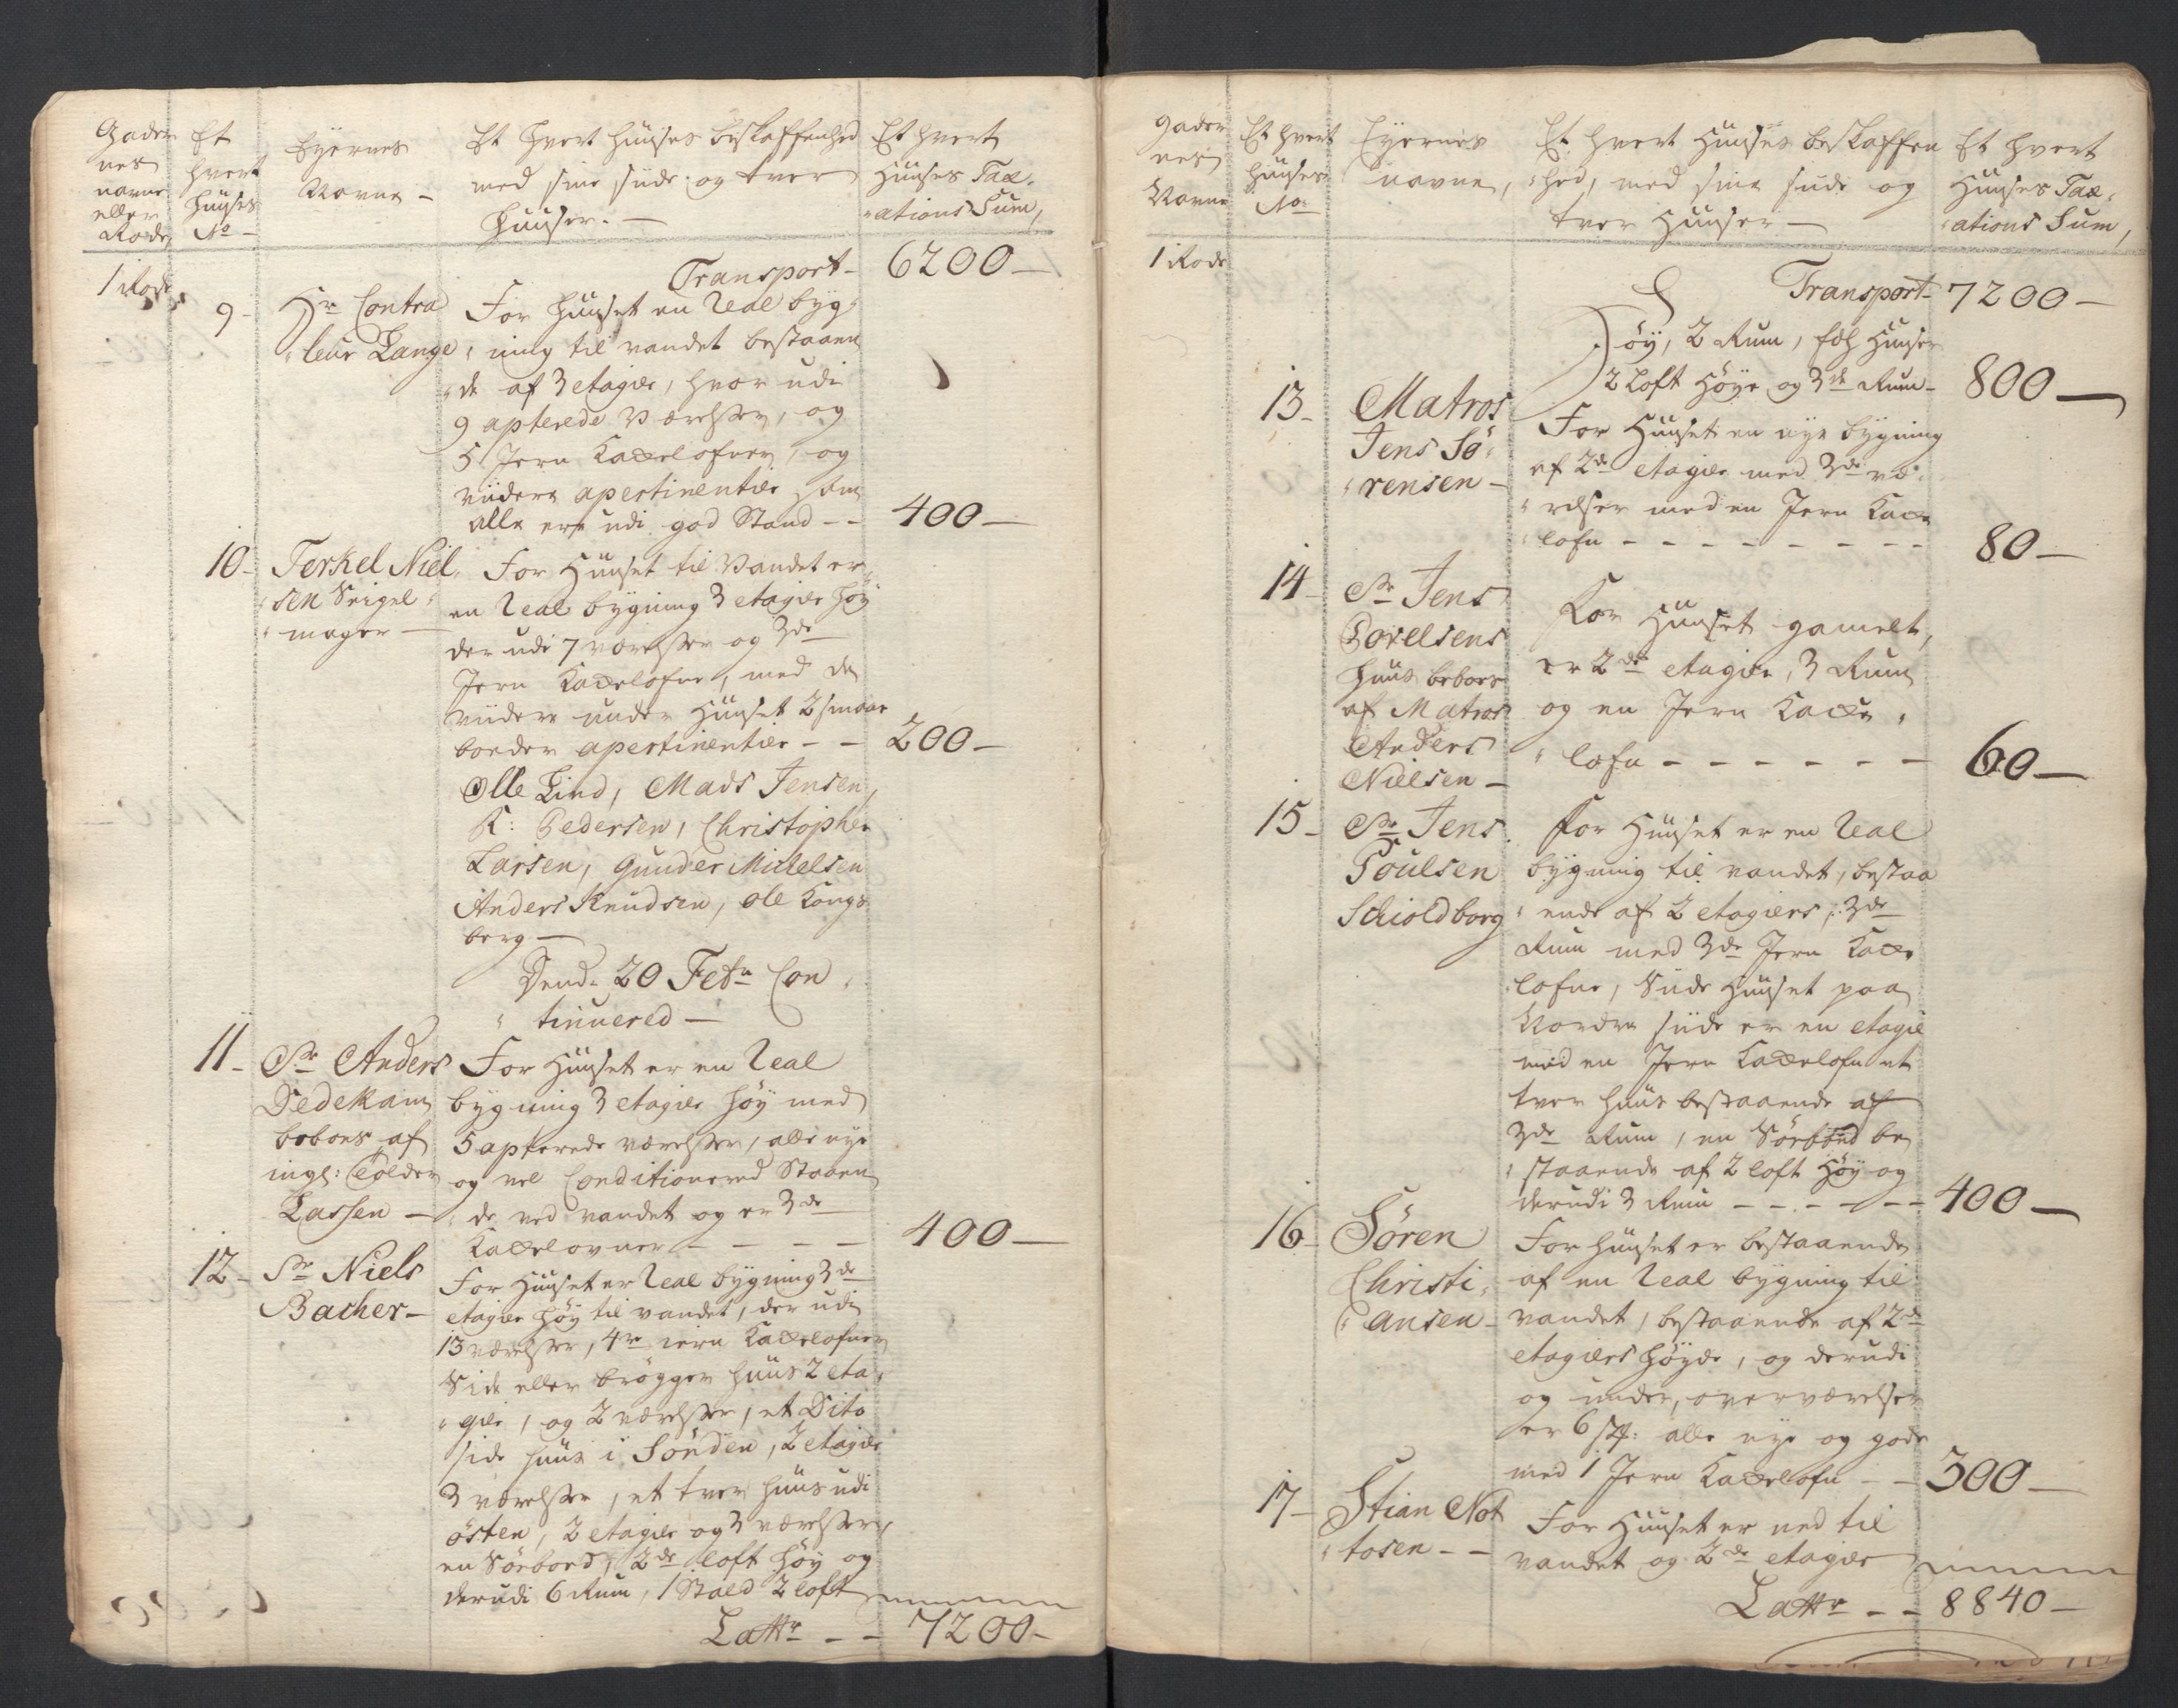 Gader
nes
navne
eller
Rode
Et
hvert
Huuses
No
Eyernes
Navne
Et hvert huuses beskaffenhed
med sine side og tver
huuser.
Et hvert
Huuses Tax-
ations Sum,
1 Rode
Transport - 6200 -
9 -
Hr Contra
leur Lange
For huuset en Real byg
ning til vandet bestaaen
de af 3 etagier, hvor udi
9 apterede værelsser, og
5 Jern Kaxelofner, og
viidere apertinentier som
alle ere udi god Stand - - 400 -
10 -
Terkel Niel
sen Seigel
mager
For Huuset til Vandet er
en Real bygning 3 etagier høy
der udi 7 værelsser og 3de
Jern Kaxelofne, med de
viidere under Huuset 2 smaae
boeder apertinentier - - 200 -
Olle Lind, Mads Jensen,
K: Pedersen, Christopher
Larsen, Gunder Michelsen
Anders Knudsen, Ole Kongs
berg -
Dend. 20 Febr Con
tinuered -
11 -
Sr Anders
Dedekam
beboes af
ingl: Tolder
Lassen -
For Huuset er en Real
bygning 3 etagier høy med
5 apterede værelsser, alle nye
og vel Conditionered Staaen
de ved vandet og er 3de
Kaxelovner - - - - 400 -
12 -
Sr Niels
Bacher -
For Huuset er Real bygning 3de
etagier høy til vandet, der udi
13 værelsser, 4re iern Kaxelofner
Side eller brøgger huus 2 eta
gier, og 2 værelsser, et Dito
side huus i Sønden, 2 etagier
3 værelsser, et tver huus udi
østen, 2 etagier og 3 værelsser,
en Søebod, 2de loft høy og
derudi 6 Rum, 1 Stald 2 loft
Lattr - - 7200 -
Gader
nes
Navne
Et hvert
huuses
No
Eyernes
navne,
Et hvert Huuses beskaffen
hed, med sine side og
tver Huuser -
Et hvert
Huuses Tax-
ations Sum,
1 Rode
Transport - 7200 -
høy, 2 Rum, Huuser
2 Loft Høye og 3de Rum - 800 -
13 -
Matros
Jens Sö
rensen -
For Huuset en nye bygning
af 2de etagier med 3de væ
relser med en Jern Kaxe
lofn - - - - - - - - 80 -
14 -
Sr Jens
Povelsens
huus beboes
af Matros
Anders
Nielsen -
For Huuset gamelt,
er 2de etagier, 3 Rum
og en Jern Kaxe
lofn - - - - - - 60 -
15 -
Sr Jens
Poulsen
Schioldborg
For Huuset er en Real
bygning til vandet, bestaa
ende af 2 etagiers, 3de
Rum med 3de Jern Kaxe
lofne, Side Huuset paa
Nordre side er en etagie
med en Jern Kaxelofn et
tver huus bestaaende af
3de Rum, en Søebod be
staaende af 2 loft Høy og
derudi 3 Rum - - - - - 400 -
16 -
Sören
Christi
ansen -
For huuset er bestaaende
af en Real bygning til
vandet, bestaaende af 2de
etagiers høyde, og derudi
og under, over værelser
er 6 st: alle nye og gode
med 1 Jern Kaxelofn - - 300 -
17 -
Stian Not
tosen - -
For Huuset er ned til
vandet og 2de etagier
Lattr - - 8840 -